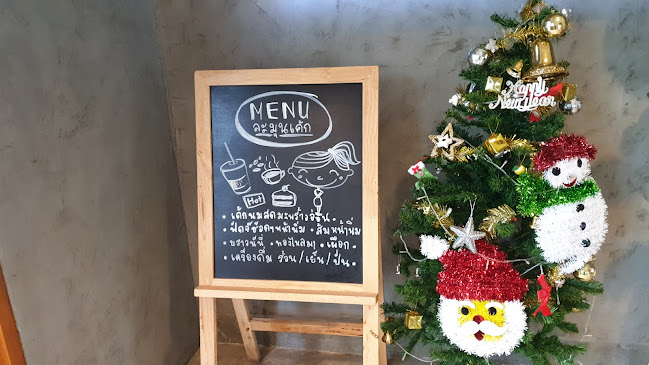 MENU
ละมุนเค้ก
Hot
• เค้กนมสดมะพร้าวอ่อน •
• ปีดจ๊ช็อคฯหน้านิ่ม • ส้มหน้านิ่ม
• บราวนี่ • ทองโหลมา • เผือก •
• เครื่องดื่ม ร้อน/เย็น/ปั่น •
Happy
New Year